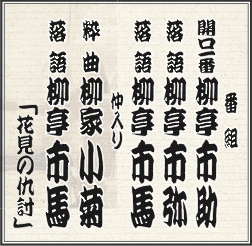 番組
開口一番 柳亭市助
落語 柳亭市弥
落語 柳亭市馬
仲入り
粋曲 柳家小菊
落語 柳亭市馬
「花見の仇討」